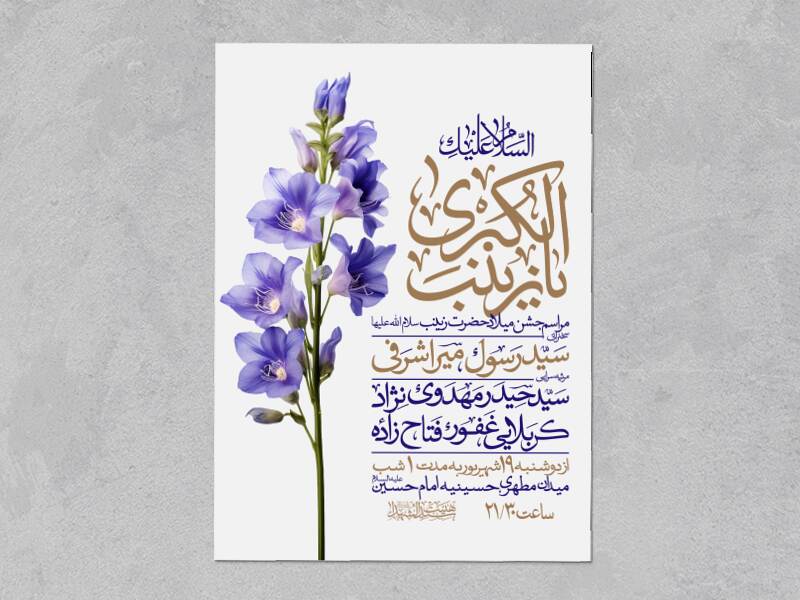 السَّلامُ عَلَیْكِ
یا زینبَ الکُبریٰ
مراسم جشن میلاد حضرت زینب سلام الله علیها
سخنرانی
سَیّد رَسول میراشرفی
مرثیه سرایی
سَیّد حیدَر مَهدَوی نژاد
کربلایی غَفور فَتاح زاده
از دوشنبه ۱۹ شهریور به مدت ۱ شب
میدان مطهری، حسینیه امام حسین علیه‌السلام
ساعت ۲۱/۳۰